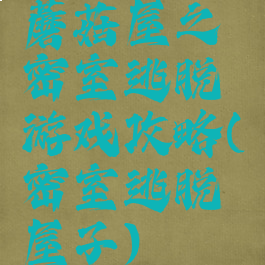 蘑菇屋之
密室逃脱
游戏攻略(
密室逃脱
屋子)